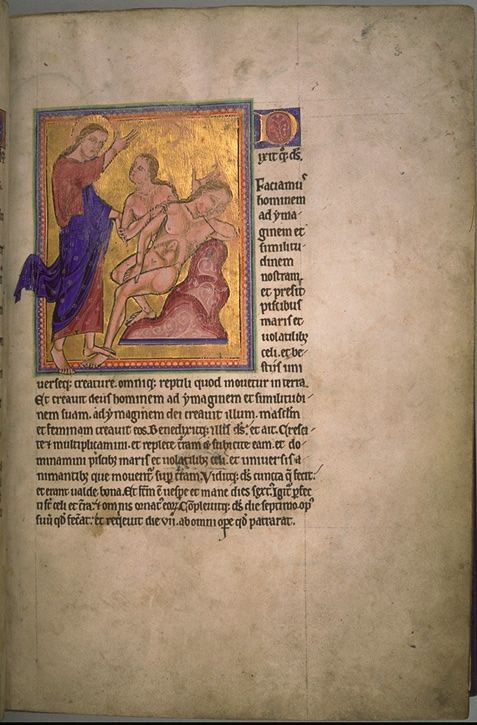 D
ixit q; ds.
Faciamus
hominem
ad yma-
ginem et
similitu-
dinem
nostram.
et presit
piscibus
maris et
uolatilibz
celi. et be-
stiis uni
uerseq; creature. omniq; reptili quod mouetur in terra.
Et creauit deus hominem ad ymaginem et similitudi-
nem suam. ad ymaginem dei creauit illum. masclm
et feminam creauit eos. Benedixitq; illis ds. et ait. Cresci-
te et multiplicamini. et replete tram et subicite eam. et do-
minamini piscibz maris et uolatilibz celi. et uniuersis a
nimantibz que mouent sup tram. Viditq; ds cuncta q fecit.
et erant ualde bona. Et fctm e uespe et mane dies sext. Igit pfec
ti st celi et tra. et omnis ornat eoz. Copleuitq; ds die septimo op
suu qd fecat. et requieuit die vii. ab omni ope qd patrarat.